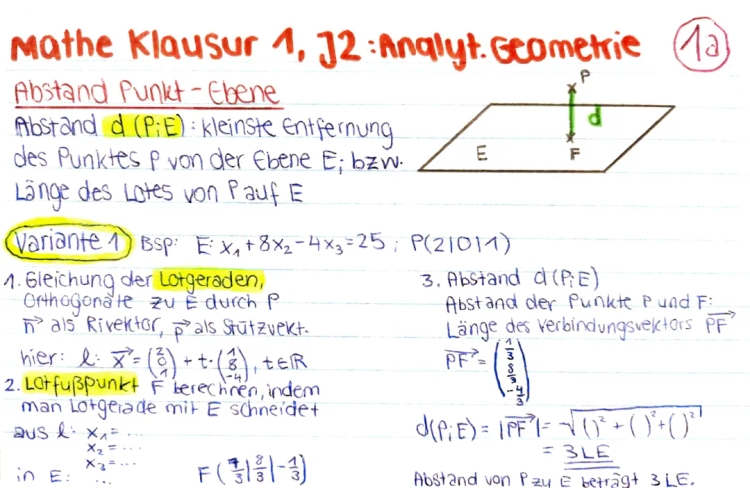 Mathe Klausur 1, J2: Analyt. Geometrie 1a
Abstand Punkt-Ebene
Abstand d(P;E): kleinste Entfernung
des Punktes P von der Ebene E; bzw.
Länge des Lotes von P auf E
P
d
E
F
Variante 1 Bsp: E: x₁+8x₂-4x₃=25; P(2|0|1)
1. Gleichung der Lotgeraden,
Orthogonale zu E durch P
n→ als Rivektor, p→ als Stützvekt.
hier: l: x→ = (2 0 1) + t·(1 8 -4), t∈R
2. Lotfußpunkt F berechnen, indem
man Lotgerade mit E schneidet
aus l: x₁=...
x₂=...
x₃=...
in E: ... F(7/3|8/3|-1/3)
3. Abstand d(P;E)
Abstand der Punkte P und F:
Länge des Verbindungsvektors PF→
PF→ = (1/3 8/3 -4/3)
d(P;E) = |PF→| = √(()²+()²+()²)
= 3LE
Abstand von P zu E beträgt 3 LE.